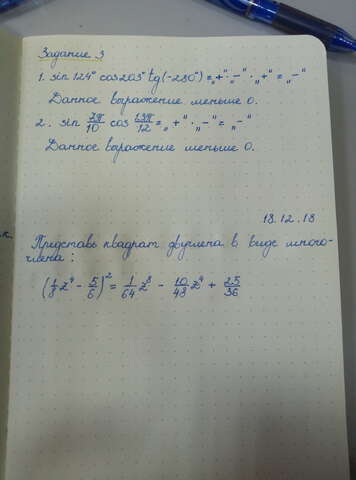 Задание 3
1. sin 124° cos 203° tg(-280°) = „+“ · „-“ · „+“ = „-“
Данное выражение меньше 0.
2. sin 7π/10 cos 13π/12 = „+“ · „-“ = „-“
Данное выражение меньше 0.
18.12.18
Представь квадрат двучлена в виде много-
члена:
(1/8 z⁴ - 5/6)² = 1/64 z⁸ - 10/48 z⁴ + 25/36